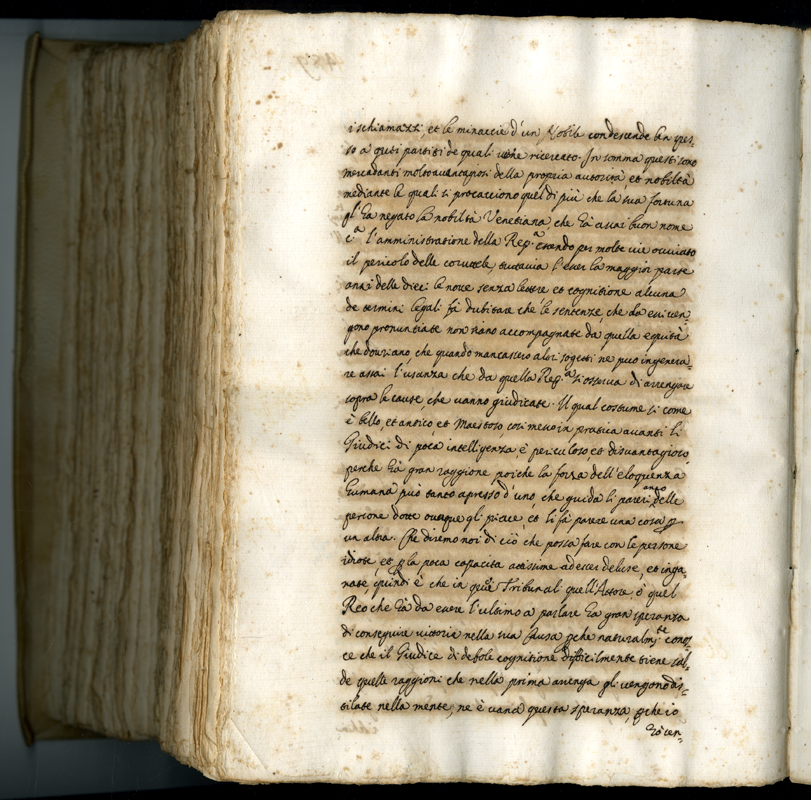 i schiamazzi, et le minaccie d'un Nobile condescende ben spes,
so a q̃sti partiti de quali viene ricercato. In somma questi sono
mercadanti molto avantagiosi della propria autorità, et nobiltà
mediante le quali si procacciono quel di più che la sua fortuna
gl'hà negato la nobiltà Venetiana che hà assai buon nome
cᵃ l'amministratione della Repᵃ essendo per molte vie ovviato
il pericolo delle coruttele, tuttavia l'esser la maggior parte
anzi delle dieci le nove senza lettere et cognitione alcuna
de termini legali fà dubitare che le sentenze, che da essi ven,
gono pronuntiate non siano accompagnate da quella equità
che douriano, che quando mancassero altri sogetti ne può ingenera,
re assai l'usanza che da quella Repᵃ si osserva di arrengare
sopra le cause, che vanno giudicate. Il qual costume si come
è bello, et antico et Maestoso, così messo in pratica avanti li
Giudici di poca intelligenza è periculoso et disvantagioso
perche hà gran raggione poiche la forza dell'eloquenza
humana può tanto apresso d'uno, che guida li pareri anco delle
persone dotte ovunque gli piace et li fà parere una cosa p
un altra. Che diremo noi di ciò che possa fare con le persone
idiote, et p la poca capacita attissime ad esser deluse, et inga,
nate, quindi è che in q̃lle Tribunal quell'Attore, ò quel
Reo che hà da esser l'ultimo a parlare hà gran speranza
di conseguire vittoria nella sua Causa pche naturalmᵗᵉ conos,
ce che il Giudice di debole cognitione difficilmente tiene sal,
de quelle raggioni che nella prima arrenga gli vengono dis,
tilate nella mente, ne è vana questa speranza, pche io
hò ven,